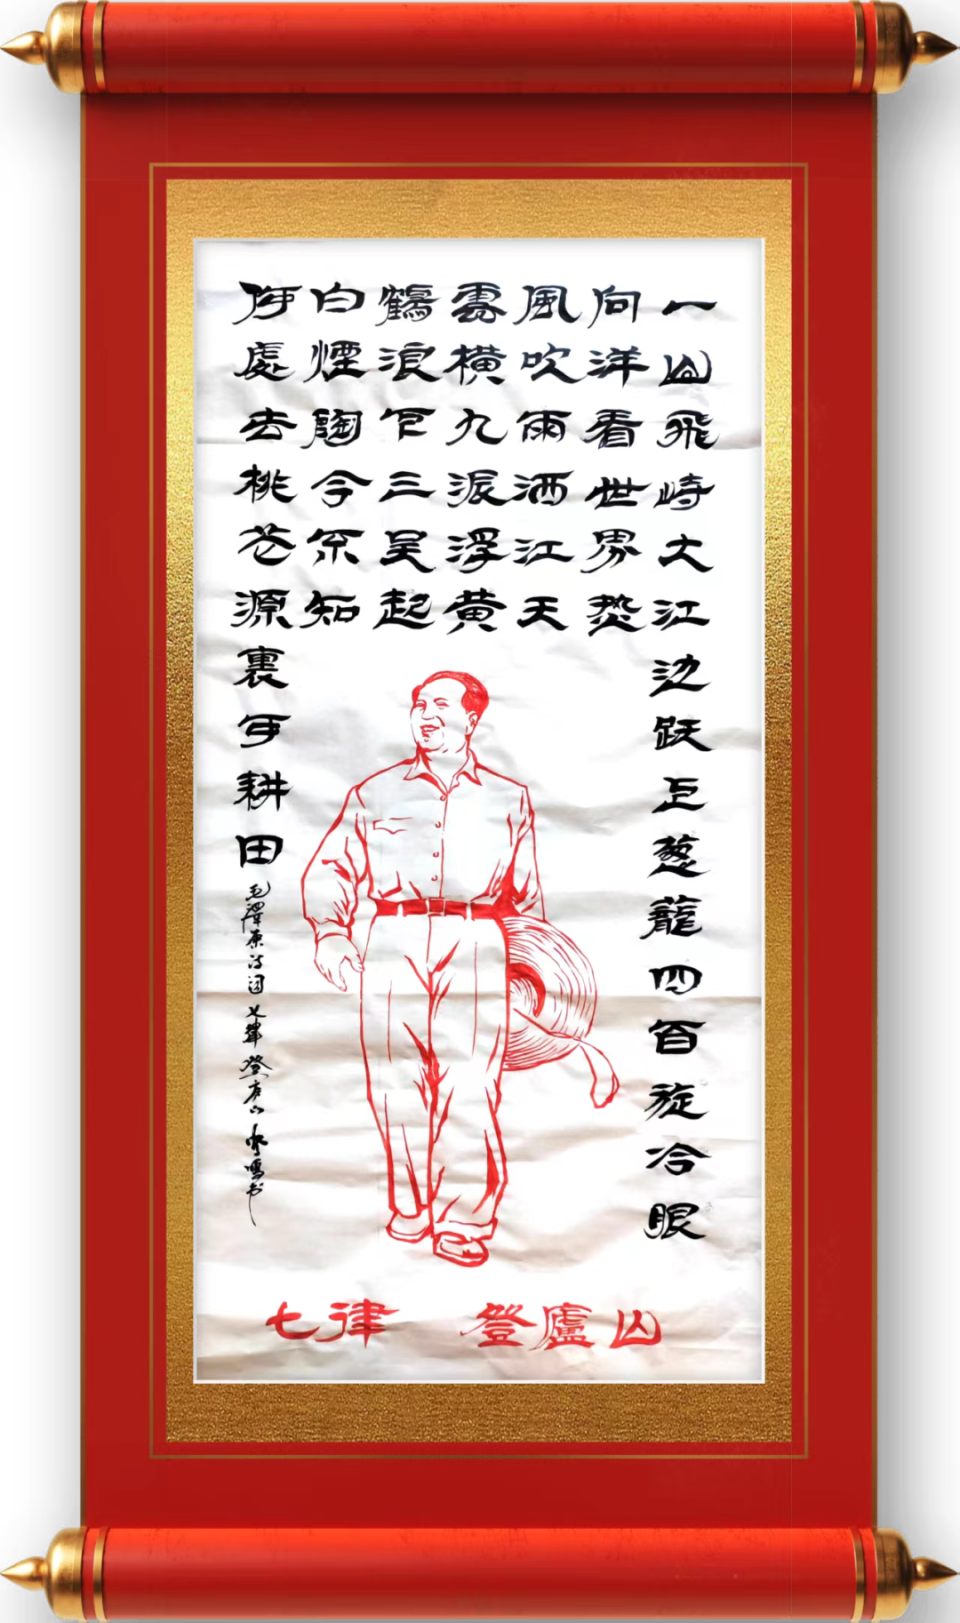 一山飛峙大江边跃上葱蘢四百旋冷眼
向洋看世界热
風吹雨洒江天
雲橫九派浮黄
鶴浪下三吴起
白煙陶令不知
何處去桃花源裏可耕田
毛澤東诗词 七律 登庐山
七律 登廬山